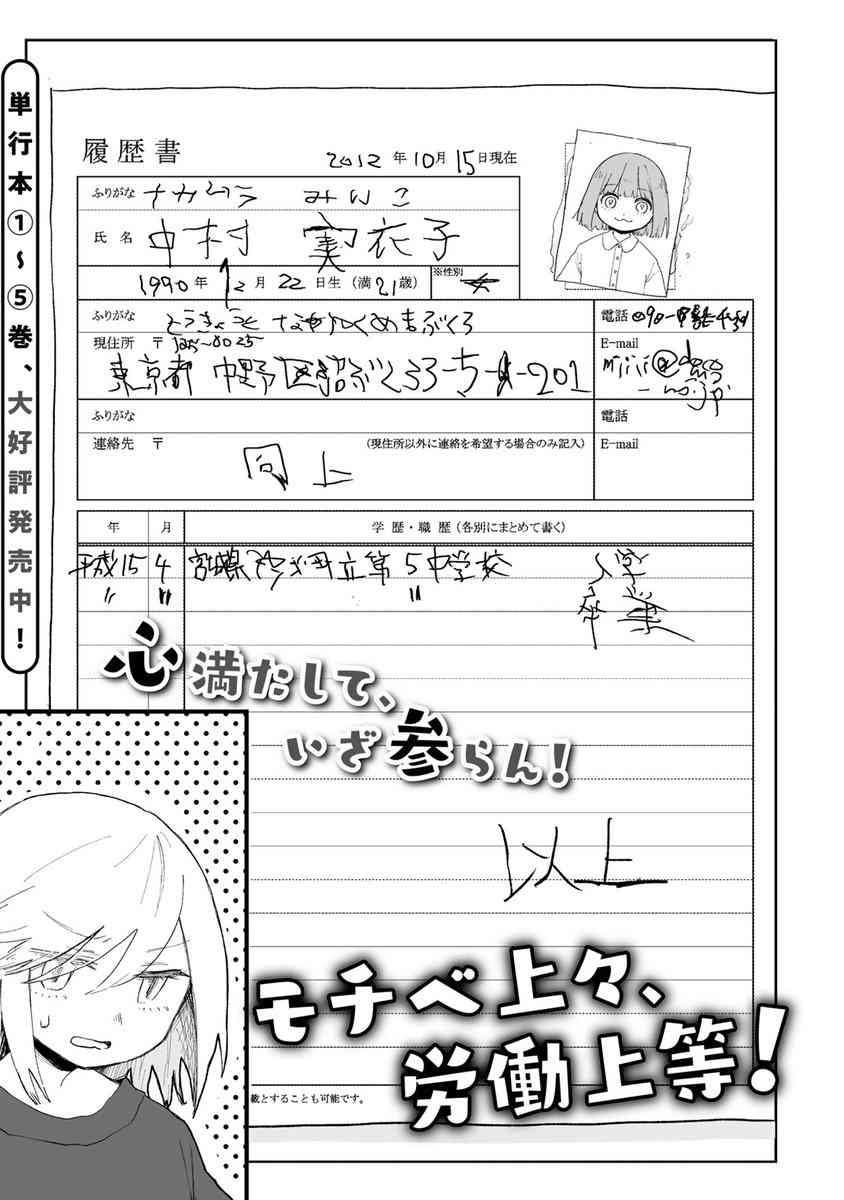 単行本①〜⑤巻、大好評発売中！
履歴書
2012年10月15日現在
ふりがな ナカムラ みいこ
氏名 中村 実衣子
1990年12月22日生（満21歳）
※性別 女
ふりがな とうきょうと なかのくぬまぶくろ
現住所 〒
東京都 中野区沼ぶくろ
電話 090-
E-mail
ふりがな
連絡先 〒
（現住所以外に連絡を希望する場合のみ記入）
同上
電話
E-mail
年 月 学歴・職歴（各別にまとめて書く）
平成15 4 宮城県 立第5中学校 入学
〃 〃 〃 卒業
心満たして、
いざ参らん！
以上
モチベ上々、
労働上等！
載とすることも可能です。